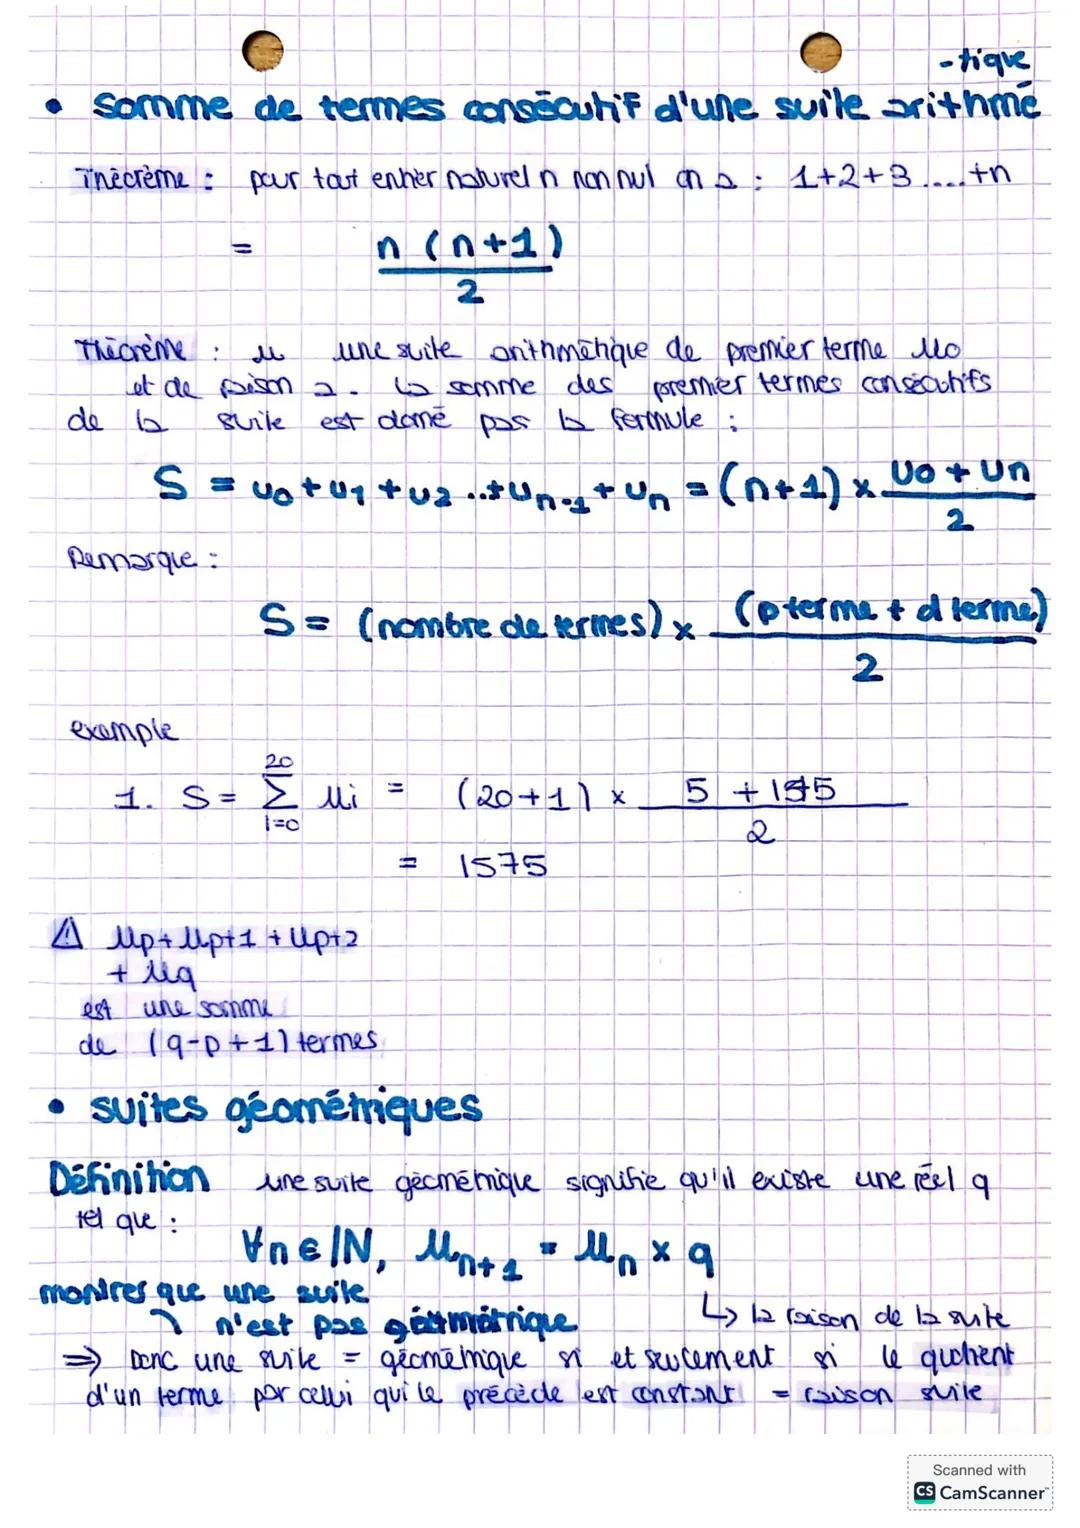 -tique
• somme de termes consécutif d'une suite arithmé
Théorème : pour tout entier naturel n non nul on a : 1+2+3....+n
= n (n+1)
2
Théorème : u une suite arithmétique de premier terme u0
et de raison a. la somme des premier termes consécutifs
de la suite est donné pas la formule :
S = u0 + u1 + u2 ..+ un-1 + un = (n+1) x U0 + Un
2
Remarque :
S = (nombre de termes) x (p terme + d terme)
2
exemple
20
1. S = Σ ui = (20+1) x 5 + 145
i=0
2
= 1575
⚠ up + up+1 + up+2
+ uq
est une somme
de (q-p+1) termes
• suites géométriques
Définition une suite géométrique signifie qu'il existe une réel q
tel que :
∀n ∈ IN, un+1 = un x q
montrer que une suite
n'est pas géométrique ↳ la raison de la suite
=> Donc une suite = géométrique si et seulement si le quotient
d'un terme par celui qui le précède est constant = raison suite
Scanned with
CS CamScanner